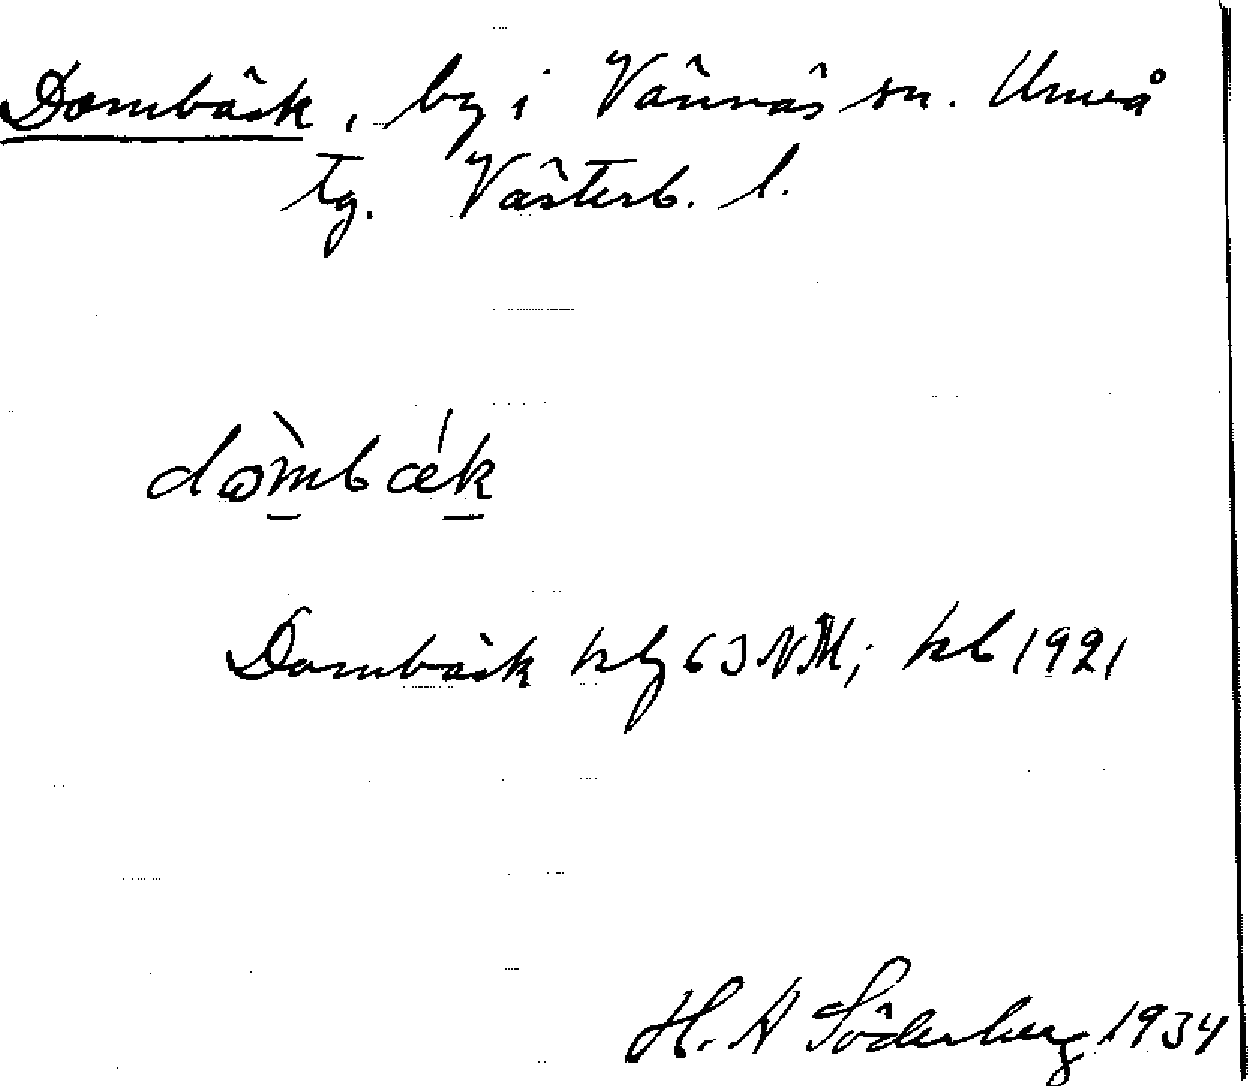 Dombäck, by i Vännäs sn. Umeå
tg. Västerb. l.
dòmbǽk
Dombäck kbl 63 NVM; hb 1921
H. A Söderberg 1934